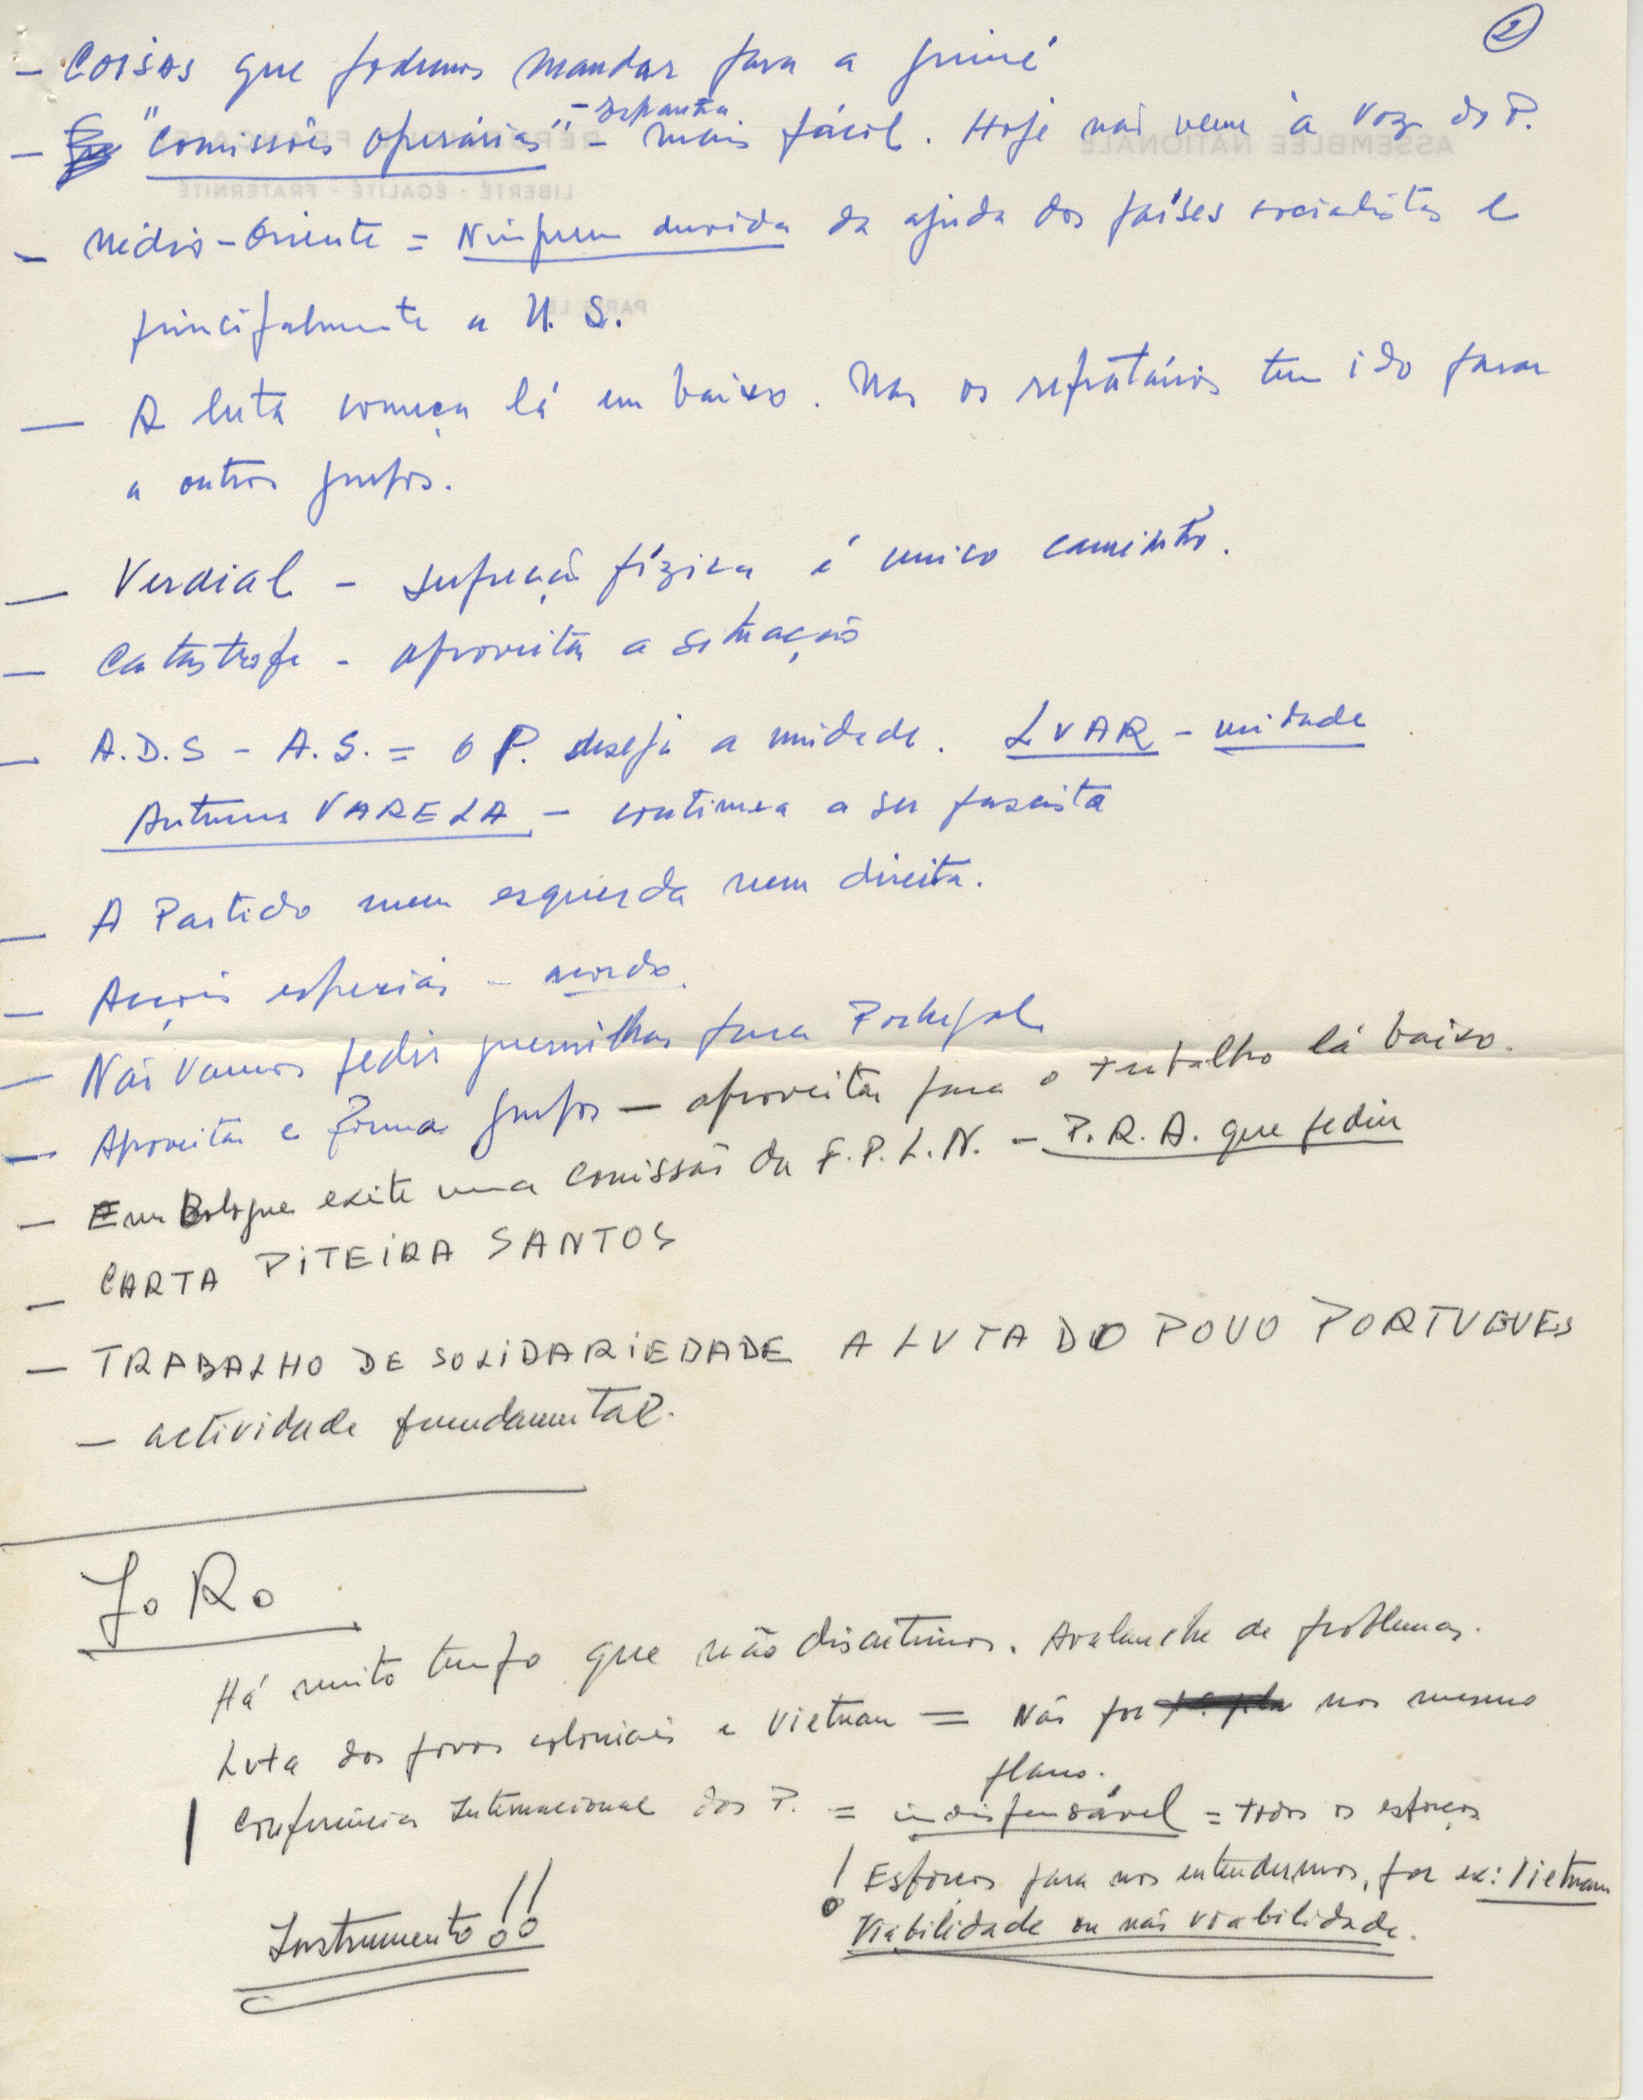 2
- Coisas que podemos mandar para a Guiné
- "Comissões operárias" - Espanha - mais fácil. Hoje não vem à voz do P.
- Médio-Oriente = Ninguem duvida da ajuda dos países socialistas e
principalmente a U. S.
- A luta começa lá em baixo. Mas os refratários tem ido parar
a outros grupos.
- Verdial - supressão fízica é unico caminho.
- Catastrofe - aproveitar a situação
- A.D.S - A.S. = O P. deseja a unidade. LUAR - unidade
Antunes VARELA - continua a ser fascista
- A Partido nem esquerda nem direita.
- Acções especiais - acordo.
- Não vamos pedir guerrilhas para Portugal
- Aproveitar e formar grupos - aproveitar para o trabalho lá baixo.
- Em Bologne exite uma comissão da F.P.L.N. - P.R.A. que pediu
- CARTA PITEIRA SANTOS
- TRABALHO DE SOLIDARIEDADE A LUTA DO POVO PORTUGUES
- actividade fundamental.
Jo Ro
Há muito tempo que não discutimos. Avalanche de problemas.
Luta dos povos coloniais e Vietnam = Não por nos mesmo
plano.
Conferência Internacional dos P. = indispensável = todos os esforços
! Esforços para nos entendermos, por ex: Vietnam
Instrumento!!
Viabilidade ou não viabilidade.